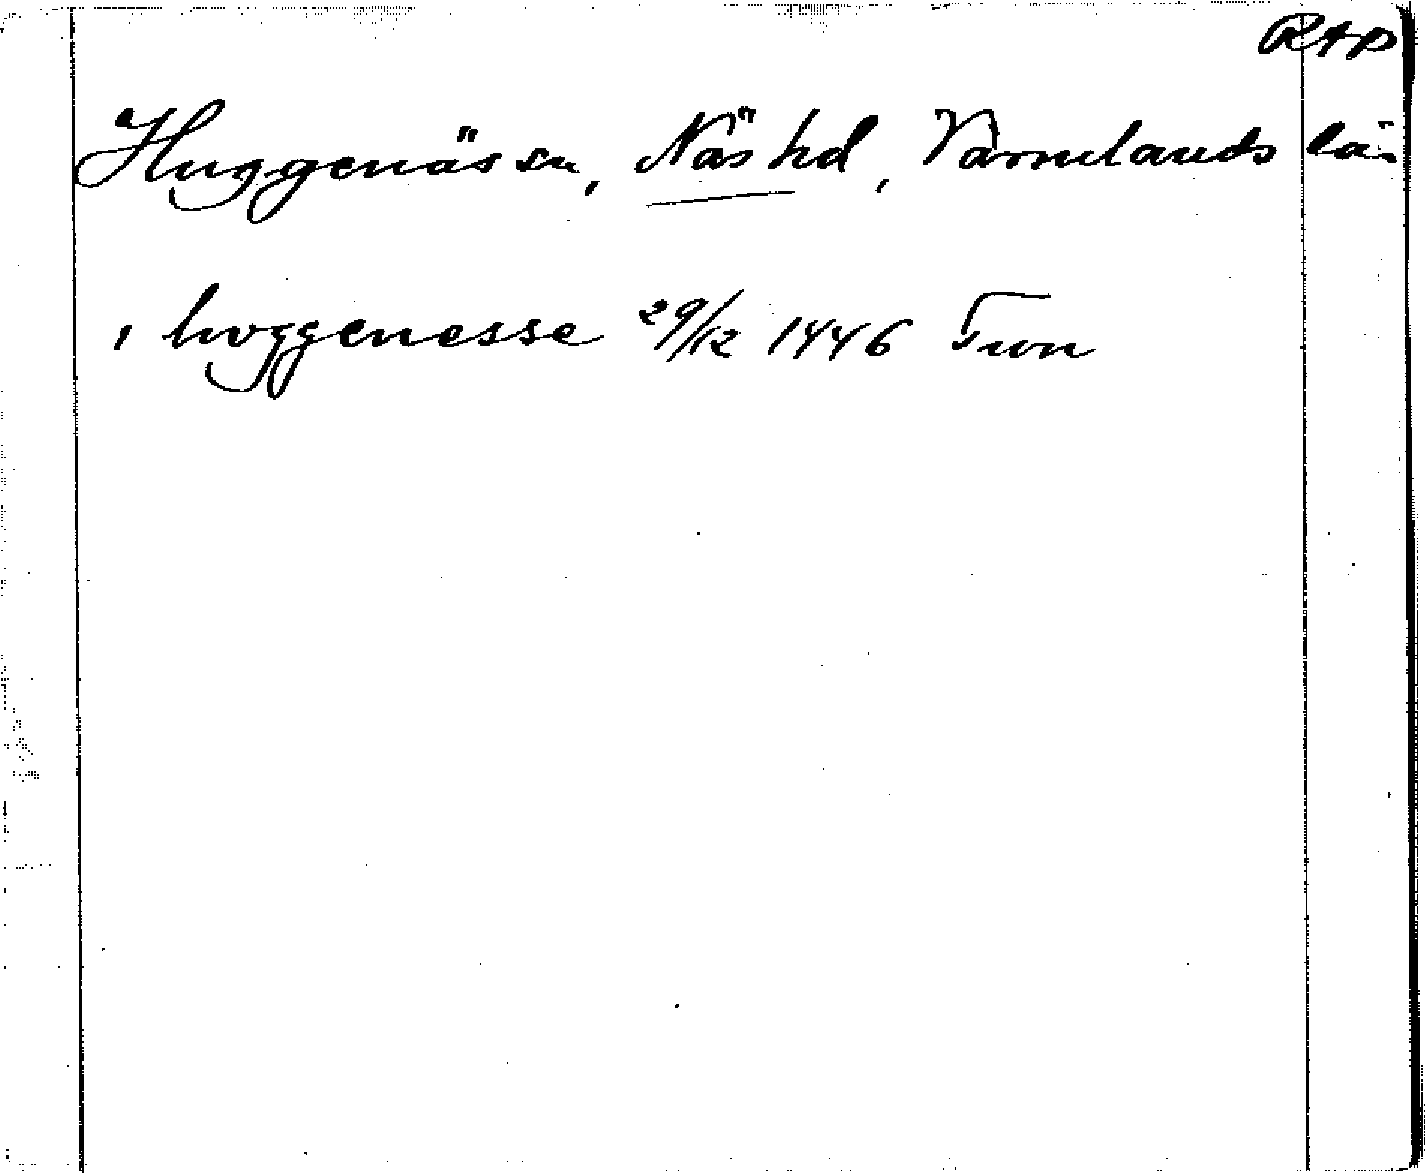 RAP
Huggenäs sn, Näs hd, Värmlands län
i hoggenesse 29/12 1446 Twn